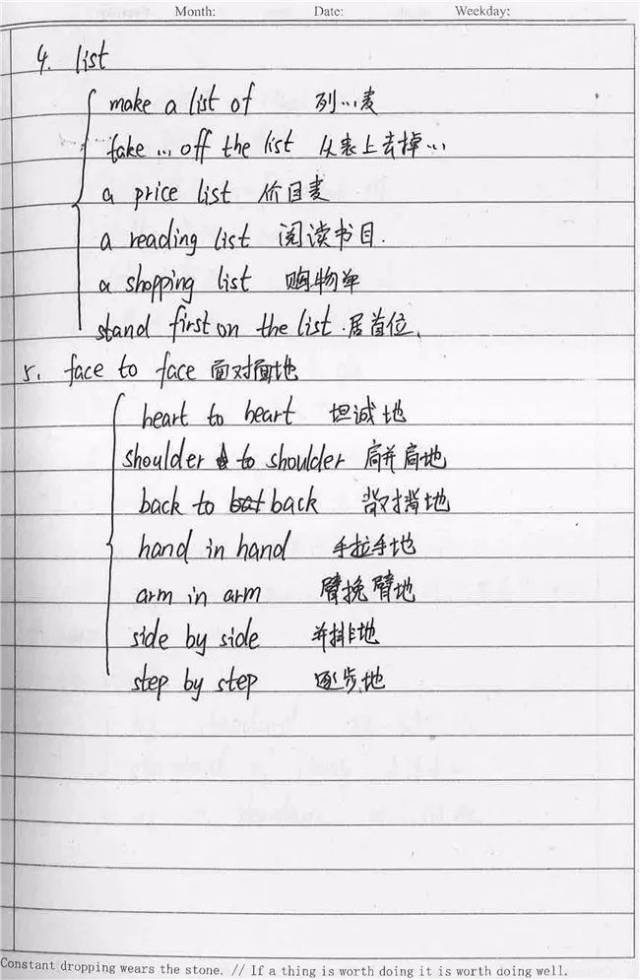 Month: Date: Weekday:
4. list
make a list of 列…表
take … off the list 从表上去掉…
a price list 价目表
a reading list 阅读书目.
a shopping list 购物单
stand first on the list. 居首位.
5. face to face 面对面地
heart to heart 坦诚地
shoulder to shoulder 肩并肩地
back to back 背对背地
hand in hand 手拉手地
arm in arm 臂挽臂地
side by side 并排地
step by step 逐步地
Constant dropping wears the stone. // If a thing is worth doing it is worth doing well.